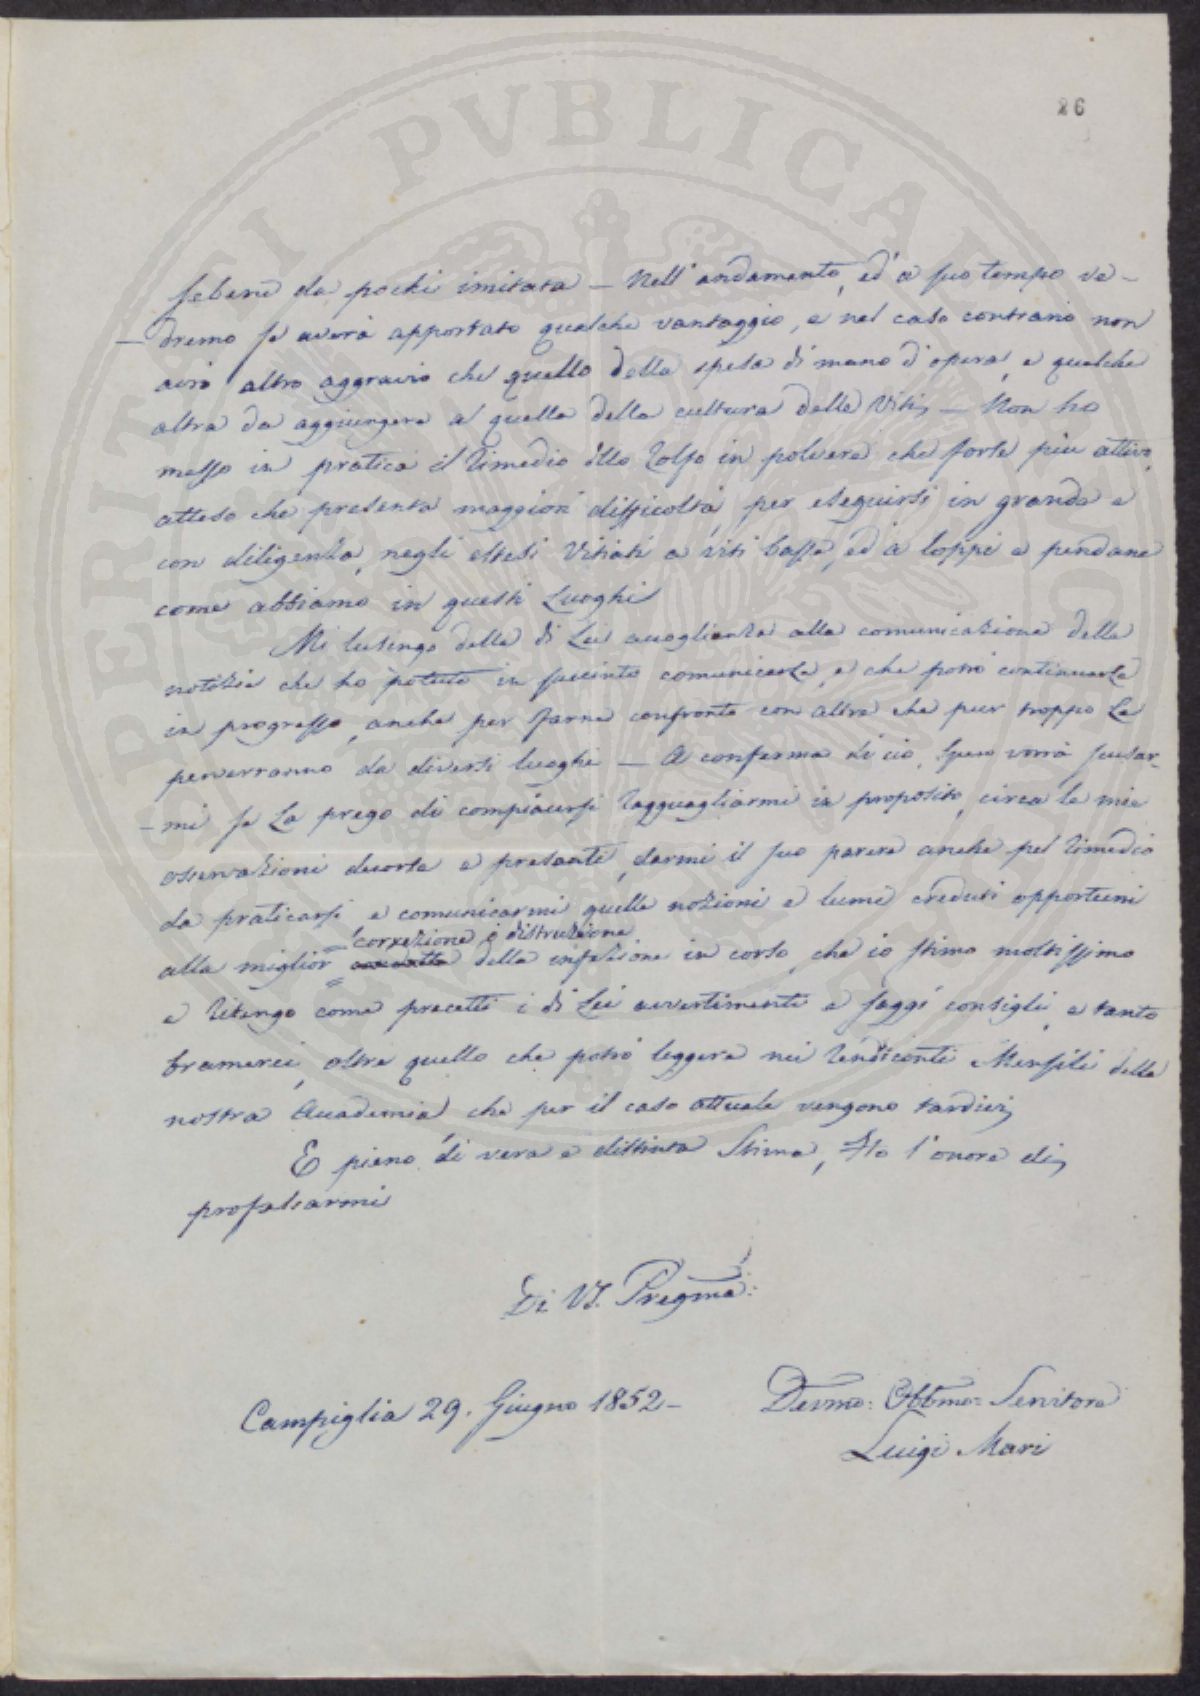 26
sebene da pochi imitata – Nell'andamento, ed a suo tempo ve-
-dremo se averà apportato qualche vantaggio, e nel caso contrario non
avrò altro aggravio che quello della spesa di mano d'opera, e qualche
altra da aggiungere a quella della cultura delle Viti – Non ho
messo in pratica il rimedio dllo Zolfo in polvere che forse più attivo,
atteso che presenta maggiori difficoltà per eseguirsi in grande e
con diligenza, negli estesi Vitiati a viti basse, ed a loppi e pendane
come abbiamo in questi Luoghi
Mi lusingo della di Lei accoglienza alla comunicazione della
notizia che ho potuto in succinto comunicarLe, e che potrò continuarLe
in progresso, anche per farne confronto con altre che pur troppo Le
perverranno da diversi luoghi – A conferma di ciò, spero vorrà scusar-
-mi se La prego di compiacersi ragguagliarmi in proposito, circa le mie
osservazioni decorse e presenti, darmi il suo parere anche pel rimedio
da praticarsi e comunicarmi quelle nozioni e lumi creduti opportuni
correzione, e distruzione
alla miglior condotta della infezione in corso, che io stimo moltissimo
e ritengo come precetti i di Lei avvertimenti e saggi consigli, e tanto
bramerei, oltre quello che potrò leggere nei rendiconti Mensili della
nostra Accademia che per il caso attuale vengono tardivi
E pieno di vera e distinta Stima, Ho l'onore di
professarmi
Di VS. Pregma:
Campiglia 29. Giugno 1852 –
Devmo: Obbmo: Servitore
Luigi Mari
PERITI PUBLICAE